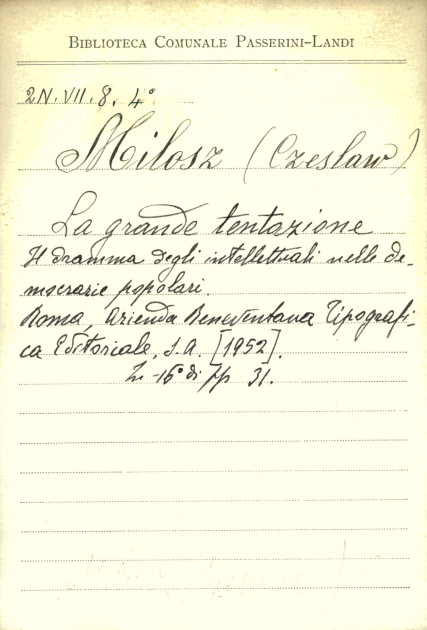 BIBLIOTECA COMUNALE PASSERINI-LANDI
2N. VII. 8. 4°
Milosz (Czeslaw)
La grande tentazione
Il dramma degli intellettuali nelle de-
mocrazie popolari.
Roma, Azienda Beneventana Tipografi-
ca Editoriale, s.a. [1952].
In-16° di pp 31.